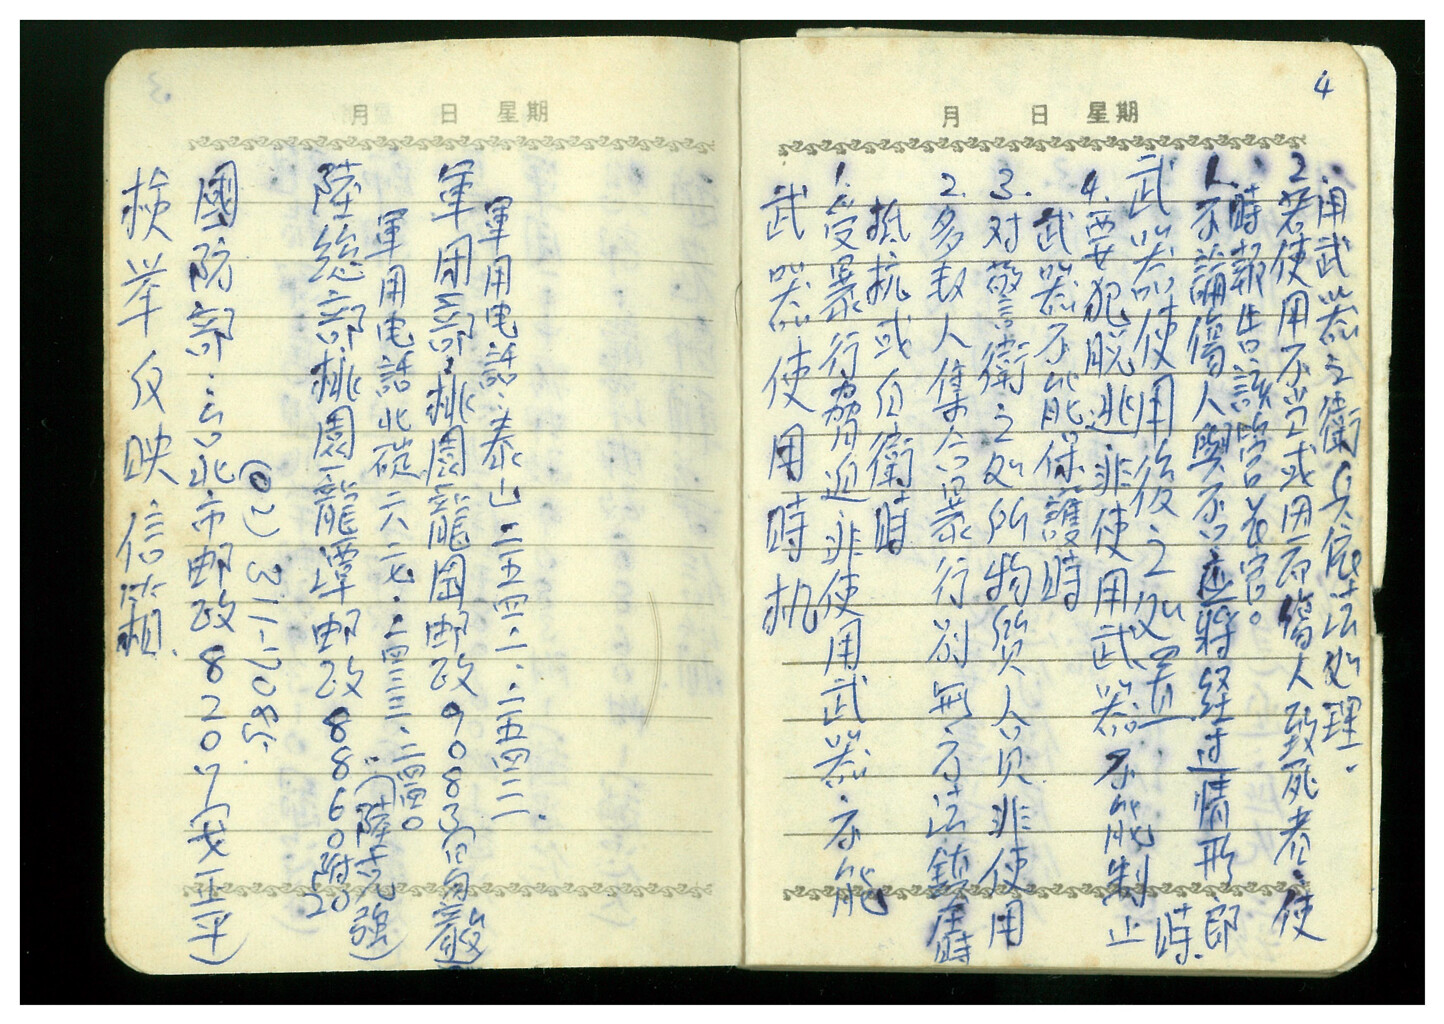 月 日 星期
檢举反映信箱.
國防部:台北市邮政8207(安正平)
(02)311-2085.
陸総部桃園龍潭邮政88660附20
(陸志強)
軍用电話北碇二六二七.二四三三.二四四〇
軍团部:桃園龍岡邮政90883(
軍用电話:泰山二五四二.二五四三二.
4
月 日 星期
武器使用時机
1.受暴行脅迫非使用武器不能
抵抗或自衛時
2.多数人集合暴行别無方法鎮压時
3.对警衛之处所物人員非使用
武器不能保護時
4.要犯脱逃非使用武器不能制止時.
武器使用後之处置
1.不論傷人與否应將经过情形即
時報告該管长官。
2.若使用不当或因而傷人致死者:使
用武器之衛兵依法处理.